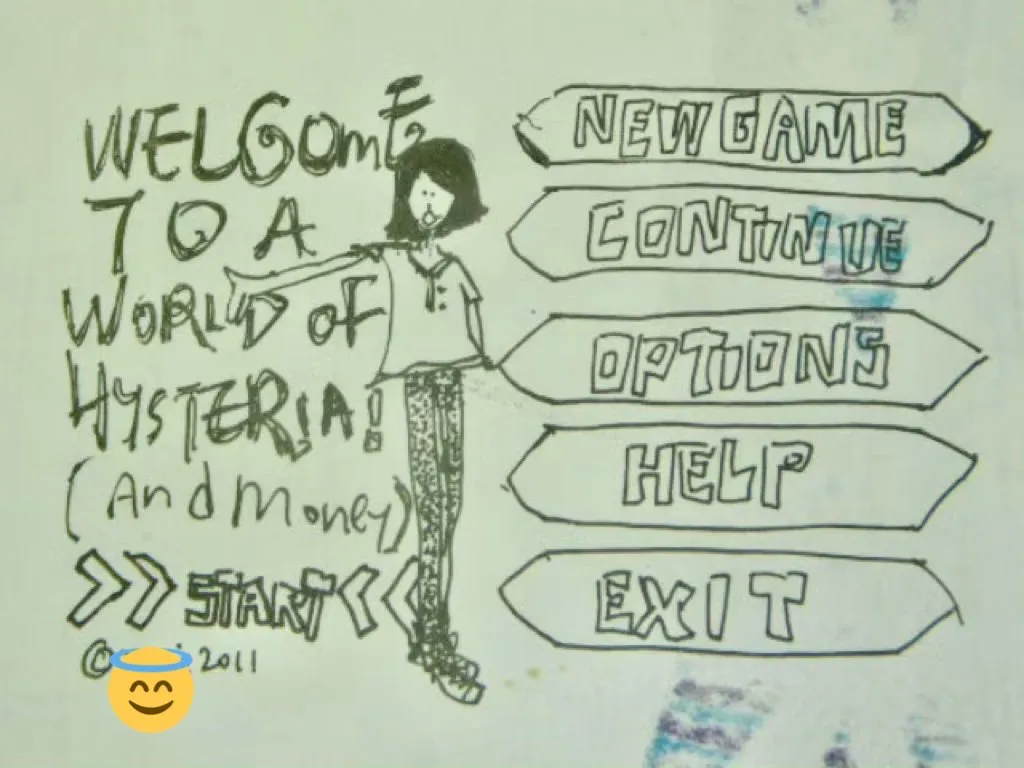 WELCOME
TO A
WORLD OF
HYSTERIA!
(And Money)
>> START <<
© 2011
NEW GAME
CONTINUE
OPTIONS
HELP
EXIT